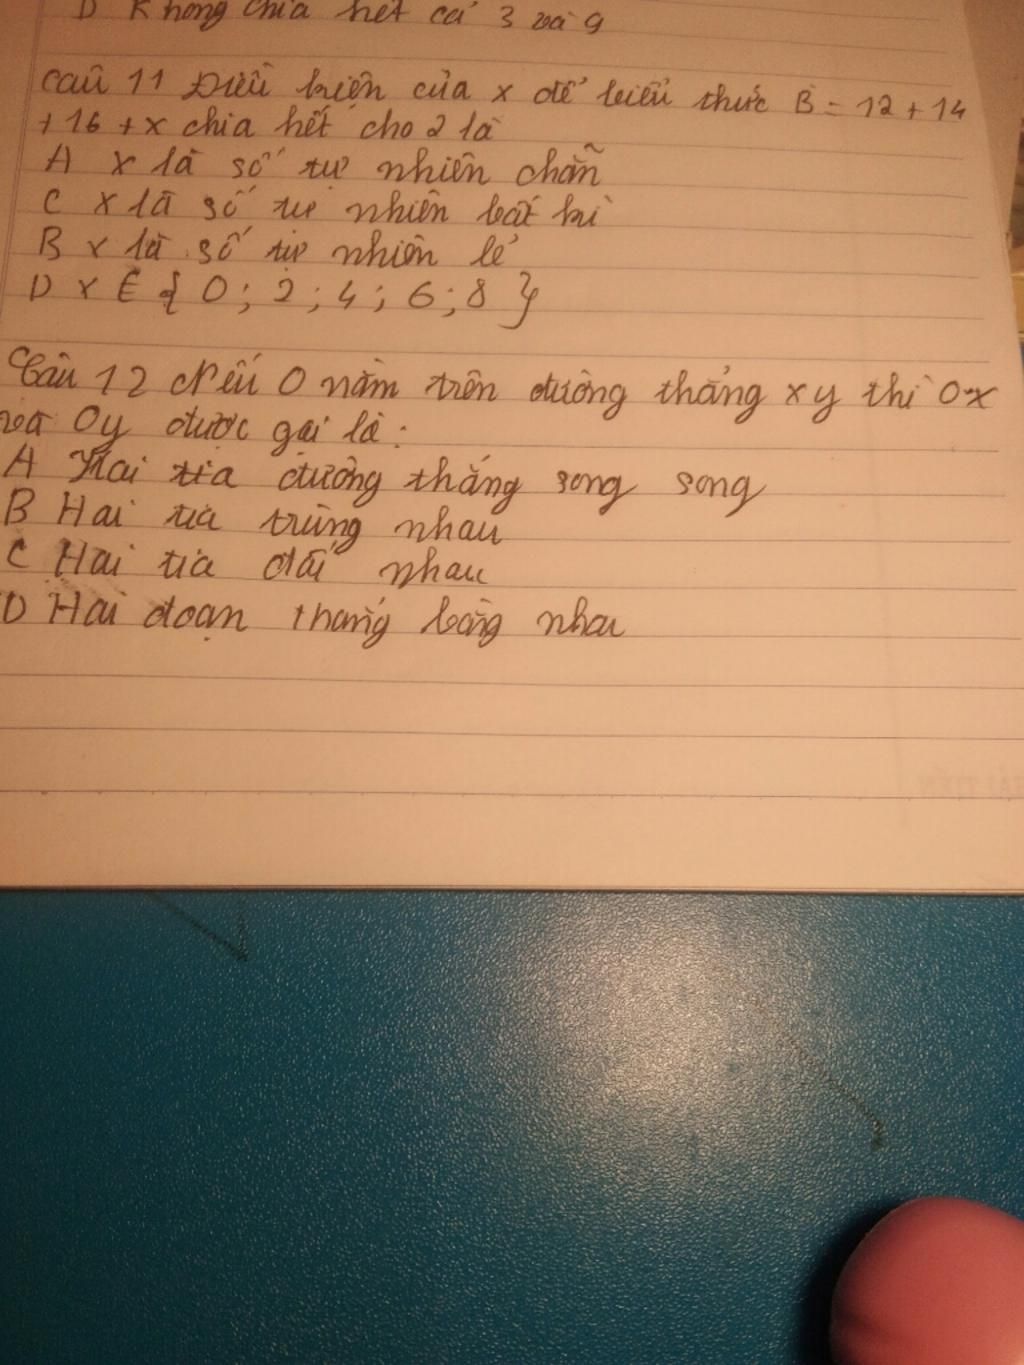 D Không chia hết cả 3 và 9
Câu 11 Điều kiện của x để biểu thức B = 12 + 14
+ 16 + x chia hết cho 2 là
A x là số tự nhiên chẵn
C x là số tự nhiên bất kì
B x là số tự nhiên lẻ
D x ∈ { 0 ; 2 ; 4 ; 6 ; 8 }
Câu 12 Nếu O nằm trên đường thẳng xy thì Ox
và Oy được gọi là :
A Hai tia đường thẳng song song
B Hai tia trùng nhau
C Hai tia đối nhau
D Hai đoạn thẳng bằng nhau